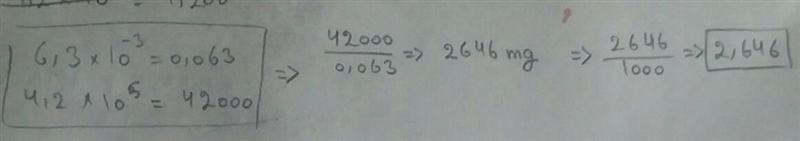 6,3 × 10⁻³ = 0,063
4,2 × 10⁵ = 42000
=> 42000/0,063 => 2646 mg => 2646/1000 => 2,646